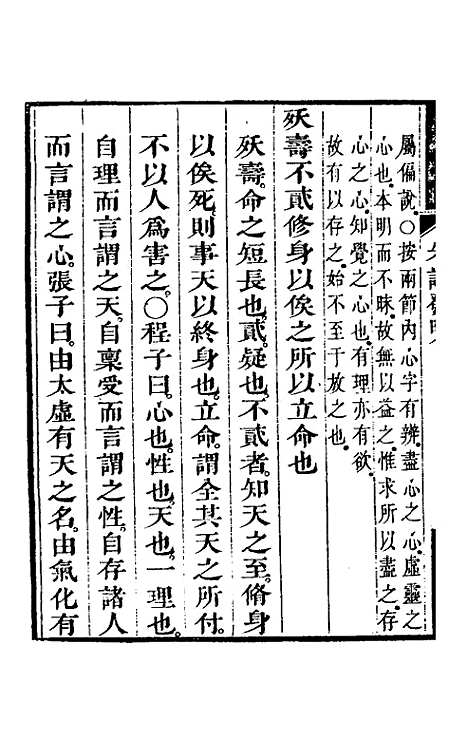 屬偏說。○按兩節內心字有辨。盡心之心。虛靈之
心也。本明而不昧。故無以益之。惟求所以盡之。存
心之心。知覺之心也。有理亦有欲。
故有以存之。始不至于放之也。
殀壽不貳修身以俟之所以立命也
殀壽。命之短長也。貳。疑也。不貳者。知天之至。脩身
以俟死。則事天以終身也。立命。謂全其天之所付。
不以人爲害之。○程子曰。心也。性也。天也。一理也。
自理而言謂之天。自稟受而言謂之性。自存諸人
而言謂之心。張子曰。由太虛有天之名。由氣化有